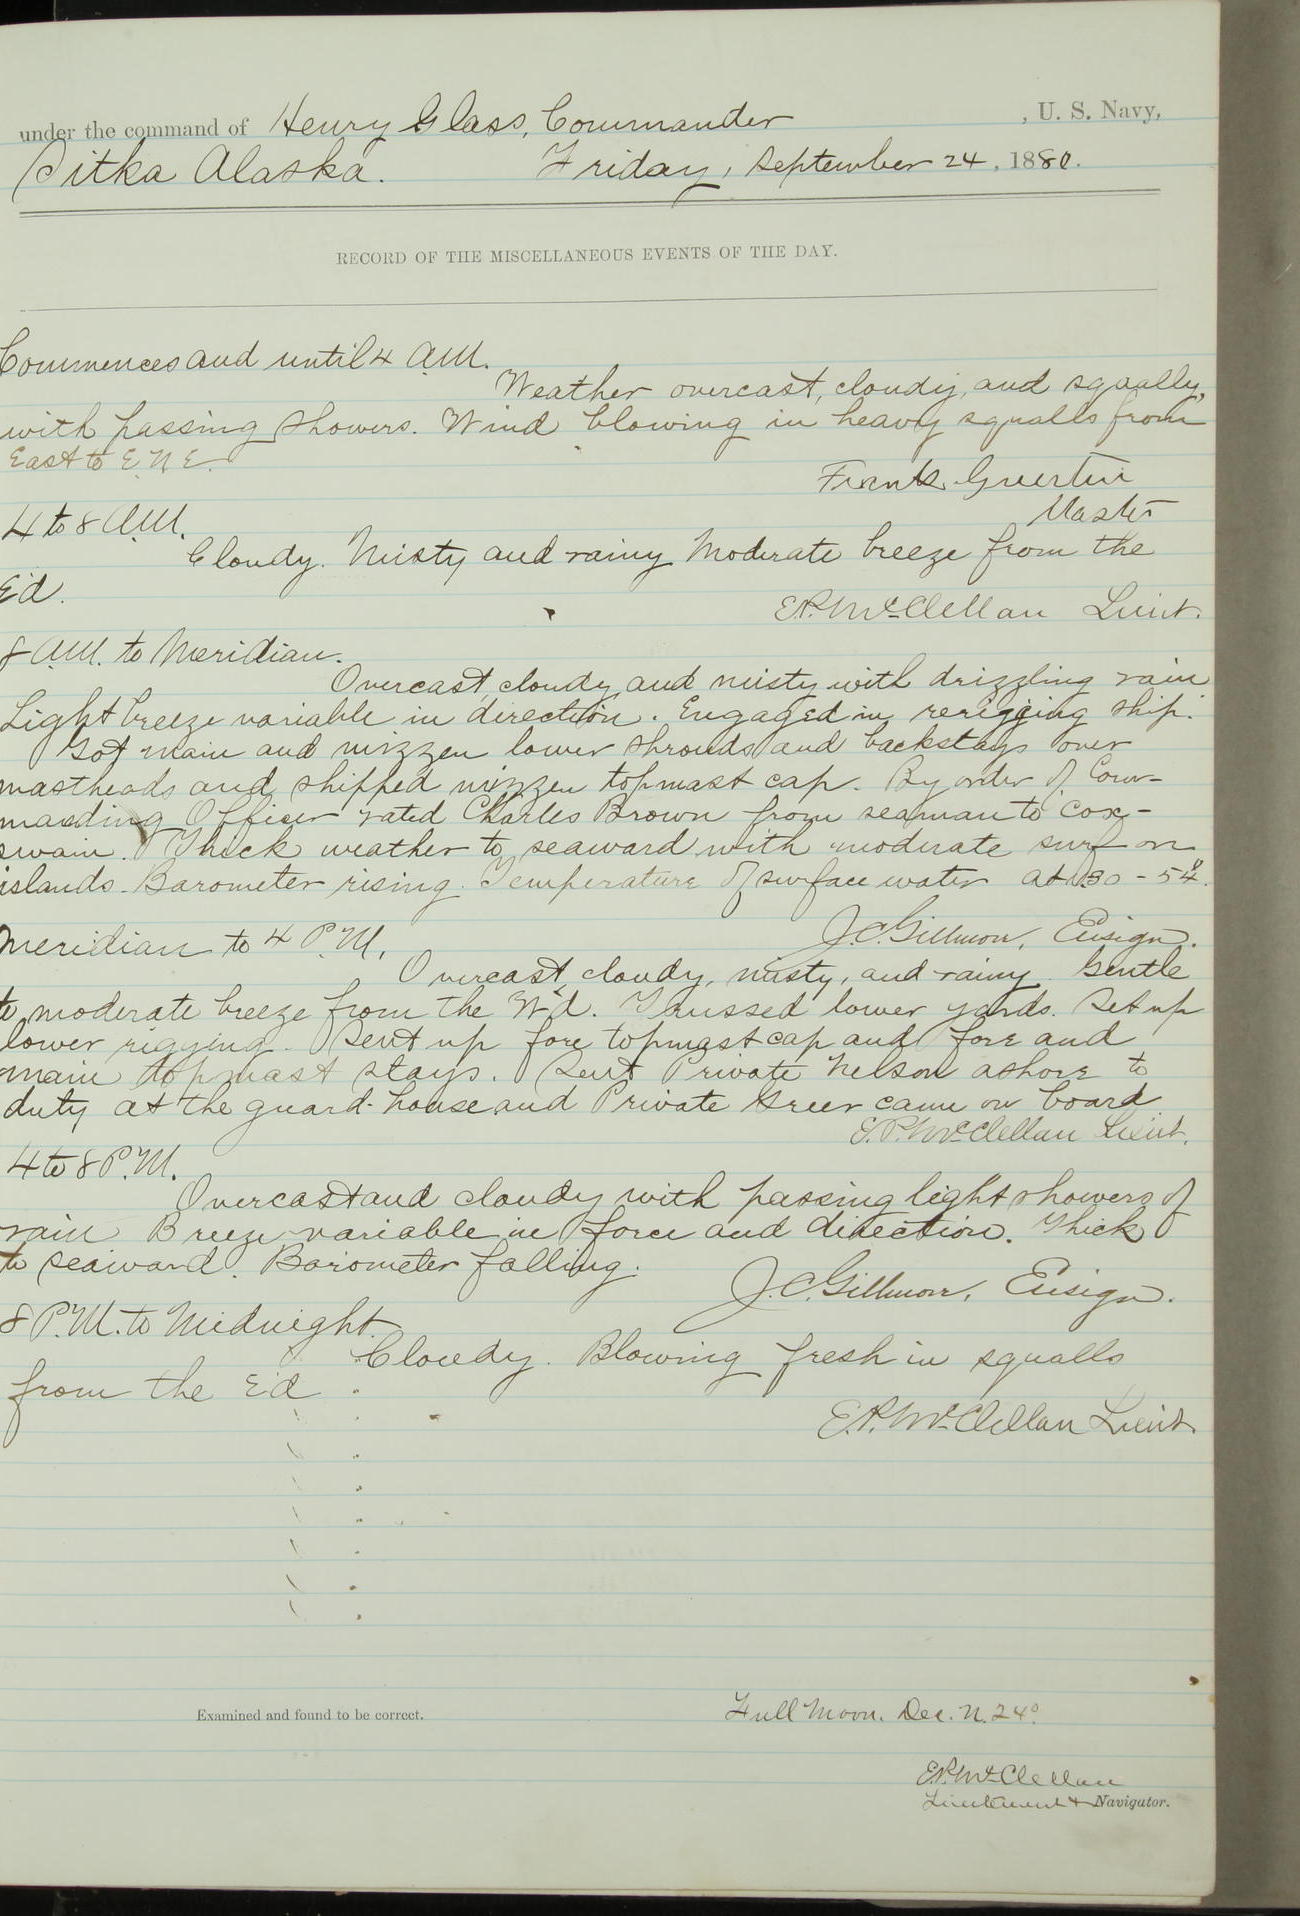 under the command of Henry Glass, Commander , U. S. Navy,
Sitka Alaska. Friday, September 24, 1880.
RECORD OF THE MISCELLANEOUS EVENTS OF THE DAY.
Commences and until 4 A.M.
Weather overcast, cloudy, and squally,
with passing showers. Wind blowing in heavy squalls from
East to E.N.E.
Frank Guertin
Master
4 to 8 A.M.
Cloudy. Misty and rainy Moderate breeze from the
E'd.
E.P. McClellan Lieut.
8 A.M. to Meridian.
Overcast, cloudy, and misty with drizzling rain
Light breeze variable in direction. Engaged in rerigging ship.
Got main and mizzen lower shrouds and backstays over
mastheads and shipped mizzen topmast cap. By order of Com-
manding Officer rated Charles Brown from seaman to Cox-
swain. Thick weather to seaward with moderate surf on
islands. Barometer rising. Temperature of surface water at 30 - 54°.
J.C. Gillmore, Ensign.
Meridian to 4 P.M.
Overcast, cloudy, misty, and rainy. Gentle
to moderate breeze from the W'd. Trussed lower yards. Set up
lower rigging. Sent up fore topmast cap and fore and
main topmast stays. Sent Private Nelson ashore to
duty at the guard-house and Private Greer came on board
E.P. McClellan Lieut.
4 to 8 P.M.
Overcast and cloudy with passing light showers of
rain Breeze variable in force and direction. Thick
to seaward. Barometer falling.
J.C. Gillmore, Ensign.
8 P.M. to Midnight.
Cloudy. Blowing fresh in squalls
from the E'd
E.P. McClellan Lieut.
Examined and found to be correct.
Full Moon. Dec. N. 24°.
E.P. McClellan
Lieutenant & Navigator.